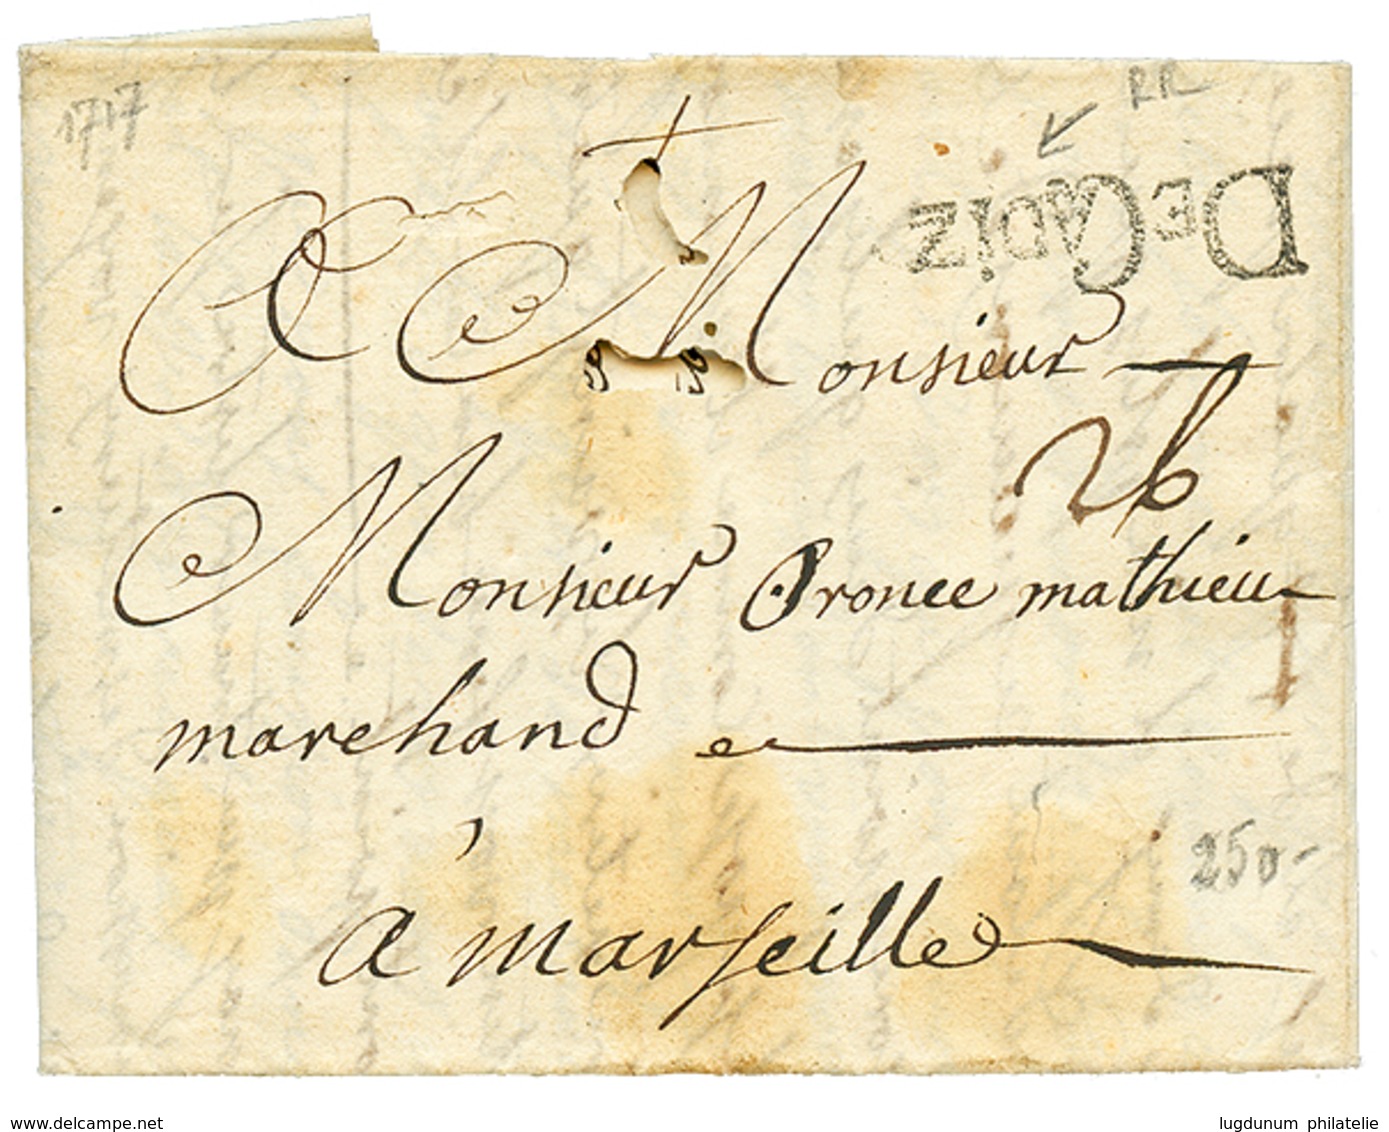 1717
RR
DE CADIZ
A Monsieur
26
Monsieur Oronce mathieu
marchand
à marseille
250-
www.delcampe.net
lugdunum philatelie